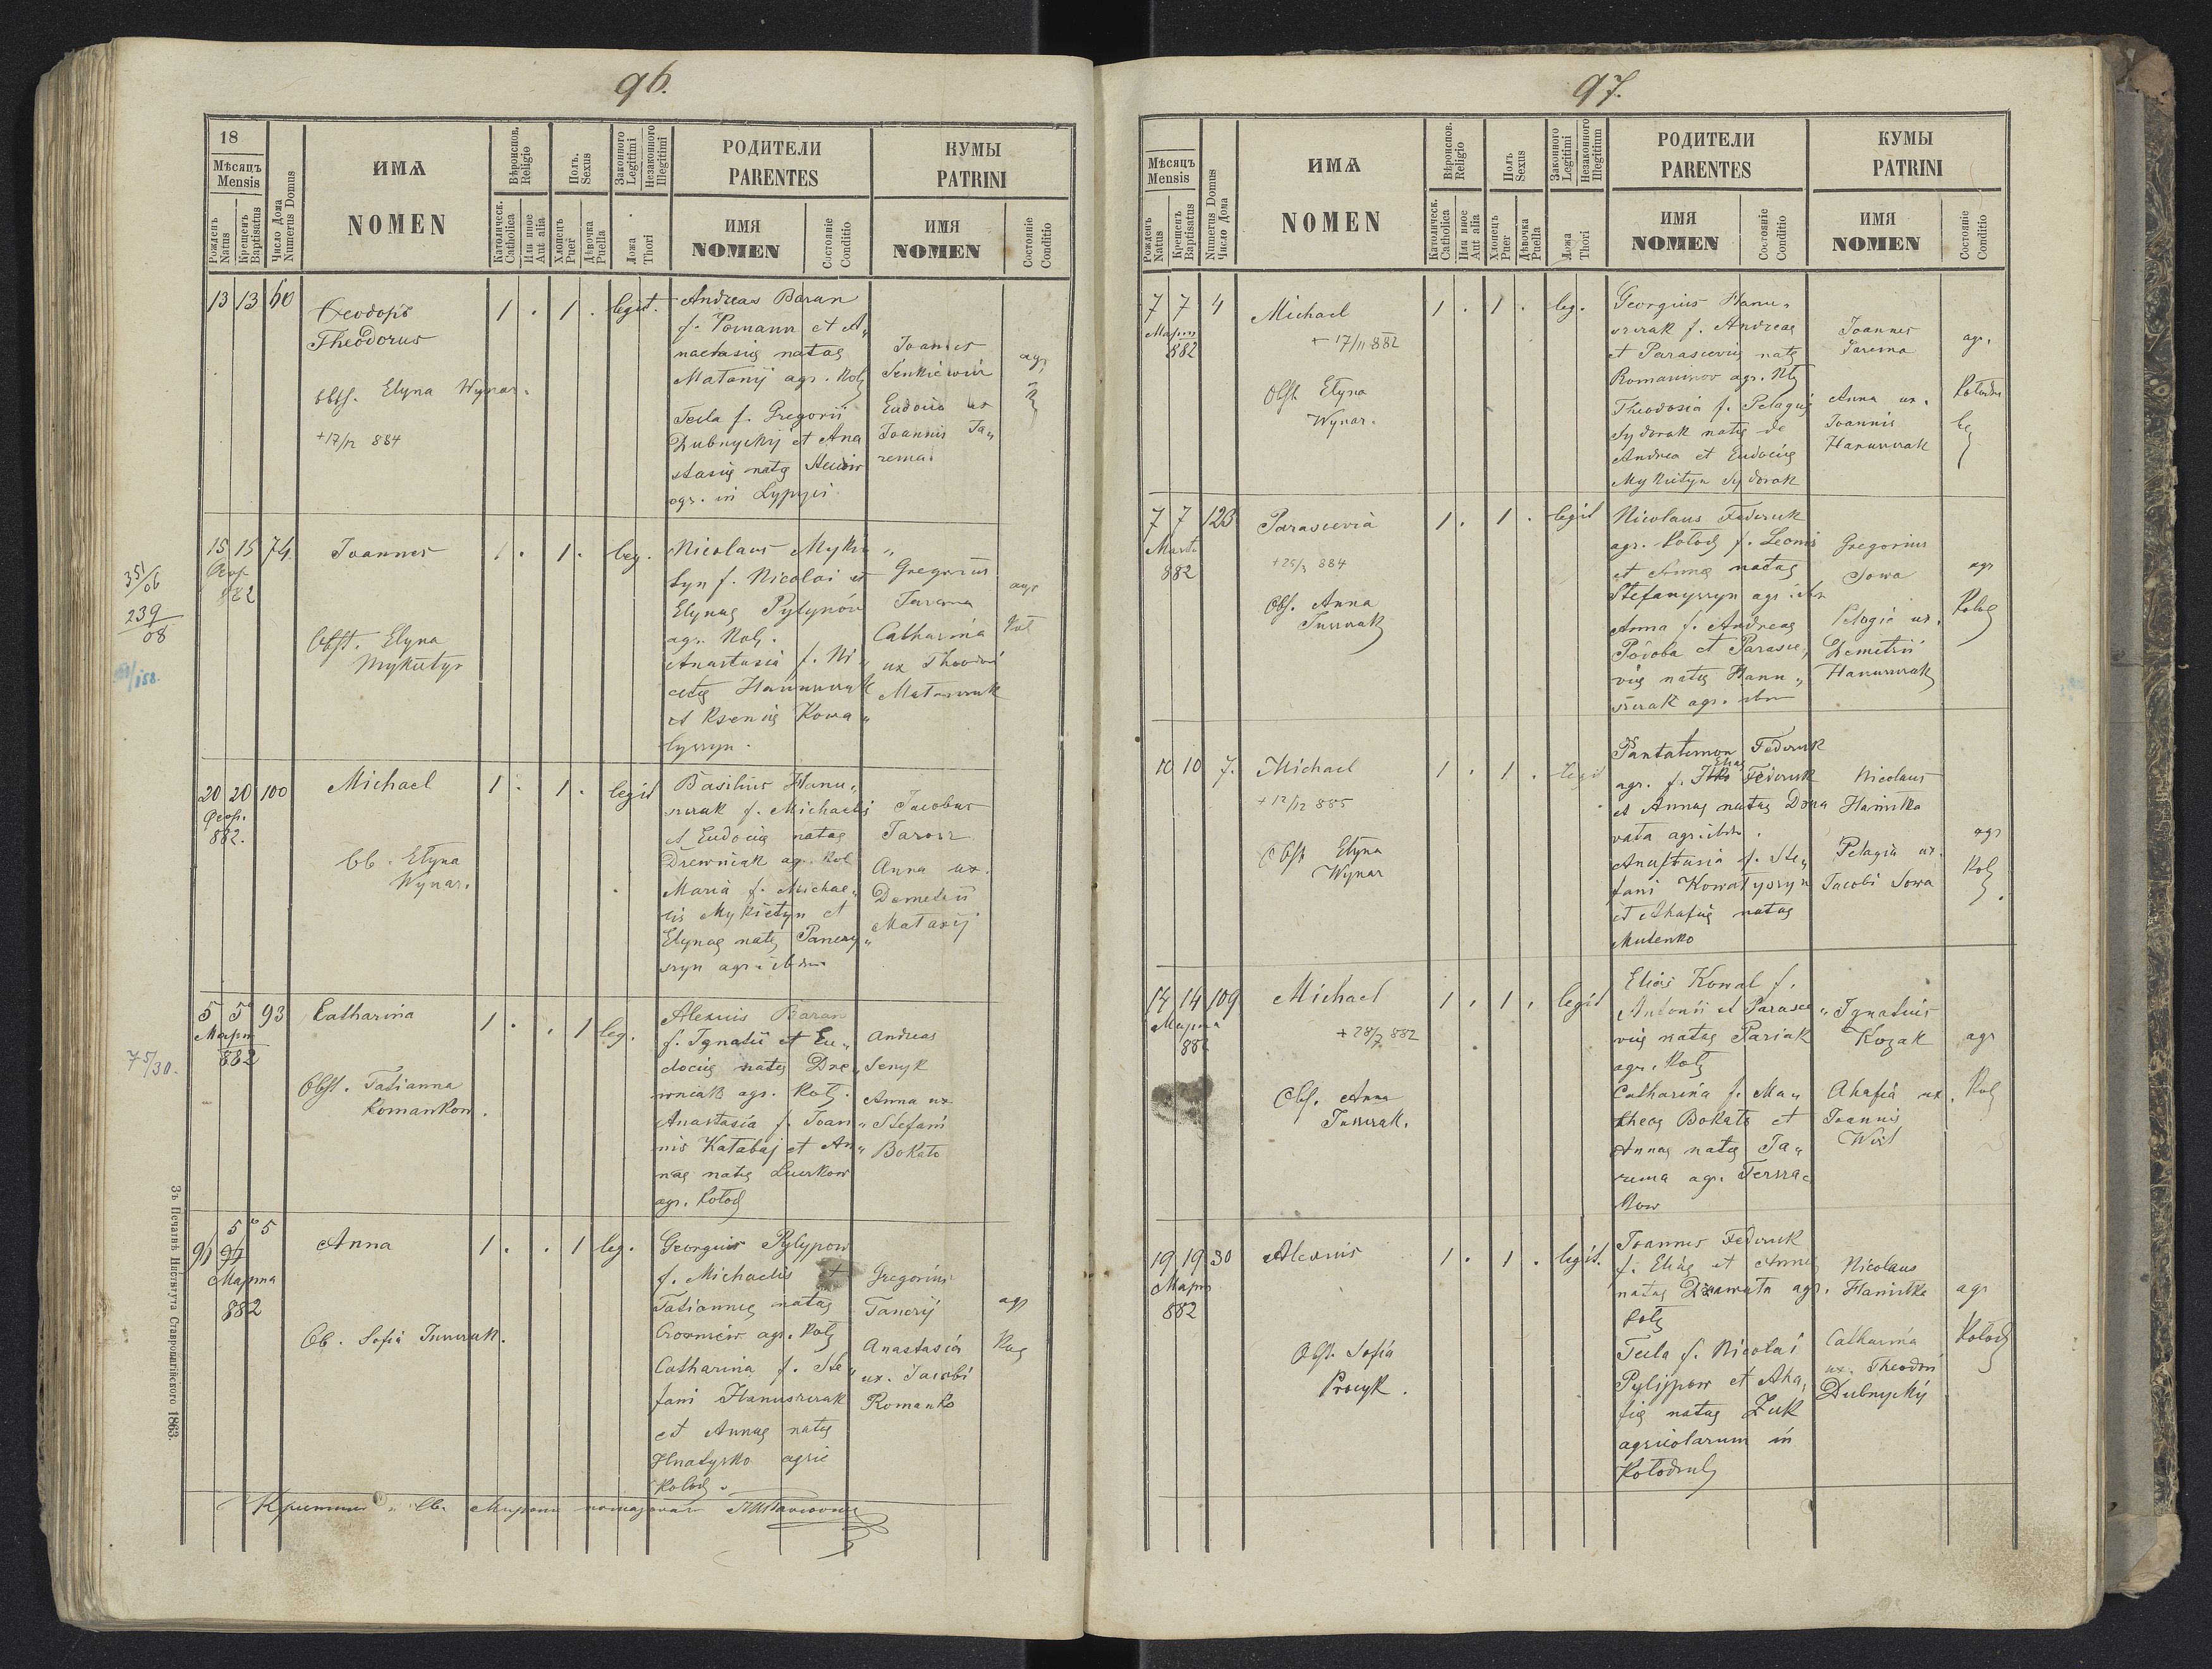 96.
18
Мѣсяцъ
Mensis
Рожденъ
Natus
Крещенъ
Baptisatus
Число Дома
Numerus Domus
ИМѦ
NOMEN
Вѣроисповѣд.
Religio
Католическ.
Catholica
Или иное
Aut alia
Полъ.
Sexus
Хлопецъ
Puer
Дѣвочка
Puella
Законного
Legitimi
Незаконного
Illegitimi
Ложа
Thori
РОДИТЕЛИ
PARENTES
ИМЯ
NOMEN
Состояніе
Conditio
КУМЫ
PATRINI
ИМЯ
NOMEN
Состояніе
Conditio
13 13 60
Ѳеодоръ
Theodorus
obst. Elyna Wynar.
+17/12 884
1 . 1 . legit.
Andreas Baran
f. Romann et A„
nastasię natae
Matanij agr. Koł
Tecla f. Gregorii
Dubnyckij et Ana
stasię natę
agr. in Lypyci
Joannes
Senkiewicz
Eudocia ux
Joannis Ja„
rema.
agr
15 15 74.
Февр.
882
351/06
239/08
158.
Joannes
Obst. Elyna
Mykietyn
1 . 1 . leg.
Nicolaus Myki„
tyn f. Nicolai et
Elynae Pyłypów
agr. Koł.
Anastasia f. Ni„
cetę Hanuszczak
et Ksenię Kowa„
lyszyn.
Gregorius
Jarema
Catharina
ux Theodori
agr
Koł
20 20 100
Февр.
882.
Michael
Ob. Elyna
Wynar.
1 . 1 . legit
Basilius Hanu„
szczak f. Michaelis
et Eudocię natae
Drewniak agr. Koł
Maria f. Michae„
lis Mykietyn et
Elynae natę
szyn agr. ibdm
Jacobus
Jarosz
Anna ux.
Demetrii
Matanij
5 5 93
Март
882
75/30.
Catharina
Obst. Tatianna
Romankow.
1 . . 1 leg.
Alexius Baran
f. Ignatii et Eu„
docię natę Dre„
wniak agr. Koł.
Anastasia f. Joan„
nis Katabaj et An„
nae natę Luczkow
agr. Kołod
Andreas
Senyk
Anna ux
Stefani
Bokało
5 5
Марта
882
Anna
Ob. Sofia Juszczak.
1 . . 1 leg.
Georgius Pyłypow
f. Michaelis et
Tatiannę natae
agr. Koł
Catharina f. Ste„
fani Hanuszczak
et Annae natę
Hnatyszko agric
Kołod.
Gregorius
Anastasia
ux. Jacobi
Romanko
agr
Зъ Печатнѣ Института Ставропигійского 1863.
97.
Мѣсяцъ
Mensis
Рожденъ
Natus
Крещенъ
Baptisatus
Numerus Domus
Число Дома
ИМѦ
NOMEN
Вѣроисповѣд.
Religio
Католическ.
Catholica
Или иное
Aut alia
Полъ
Sexus
Хлопецъ
Puer
Дѣвочка
Puella
Законного
Legitimi
Незаконного
Illegitimum
Ложа
Thori
РОДИТЕЛИ
PARENTES
ИМЯ
NOMEN
Состояніе
Conditio
КУМЫ
PATRINI
ИМЯ
NOMEN
Состояніе
Conditio
7 7 4
Март
882
Michael
+ 17/11 882
Obst Elyna
Wynar.
1 . 1 . leg.
Georgius Hanu„
szczak f. Andreae
et Parascevię natę
agr. Koł
Theodosia f. Pelagię
Sydorak natę de
Andrea et Eudocię
Mykietyn Sydorak
Joannes
Jarema
Anna ux.
Joannis
Hanuszczak
agr.
7 7 123
Marti
882
Parascevia
+ 25/3 884
Obs. Anna
Juszczak
1 . 1 . legit
Nicolaus Federuk
agr. Kołod f. Leonis
et Annę natae
Stefanyszyn agr. ibd
Anna f. Andreae
Podoba et Parasce„
vię natę Hanu„
szczak agr. ibm
Gregorius
Sowa
Pelagia ux.
Demetrii
Hanuszczak
agr
Kołod
10 10 7.
Michael
+ 12/12 885
Obst Elyna
Wynar
1 . 1 . legit
Pantalemon Federuk
agr. f. Eliae Federuk
et Annae natae
agr. ibdm.
Anastasia f. Ste„
fani Kowałyszyn
et Ahafię natae
Mutenko
Nicolaus
Hamitka
Pelagia ux.
Jacobi Sowa
agr
Koł
14 14 109
Марта
882
Michael
+ 28/7 882
Obs. Anna
Juszczak.
1 . 1 . legit
Elias Kowal f.
Antonii et Parasce„
vię natae Pariak
agr. Koł
Catharina f. Ma„
theae Bokało et
Annae natę Ja„
rema agr. Terszа„
kow
Ignatius
Kozak
Ahafia ux.
Joannis
agr
Koł
19 19 30
Март
882
Alexius
Obst. Sofia
Procyk.
1 . 1 . legit.
Joannes Federuk
f. Elię et Annę
natae agr.
Koł
Tecla f. Nicolai
Pyłypow et Aha„
fię natae Żuk
agricolarum in
Nicolaus
Hamitka
Catharina
ux. Theodori
Dubnyckij
agr
Kołod